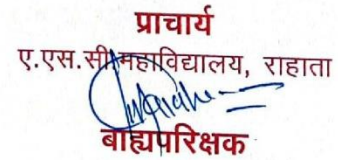 प्राचार्य
ए.एस.सी महाविद्यालय, राहाता
बाह्यपरिक्षक